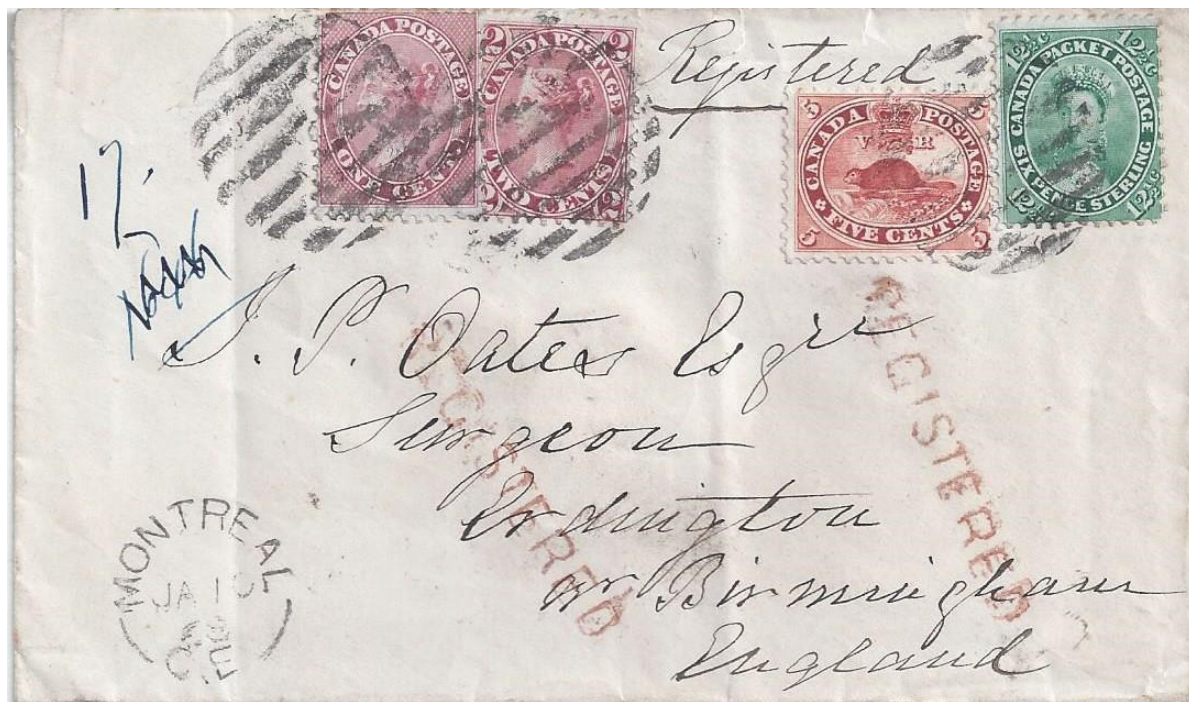 CANADA POSTAGE
ONE CENT
2 2
CANADA POSTAGE
TWO CENTS
2 2
Registered
5 5
CANADA POSTAGE
V R
FIVE CENTS
5 5
12½c 12½c
CANADA PACKET POSTAGE
SIX PENCE STERLING
12½c 12½c
12
J. P. Oates Esqre
Surgeon
Erdington
nr Birmingham
England
REGISTERED
REGISTERED
MONTREAL
JA 10
C.E